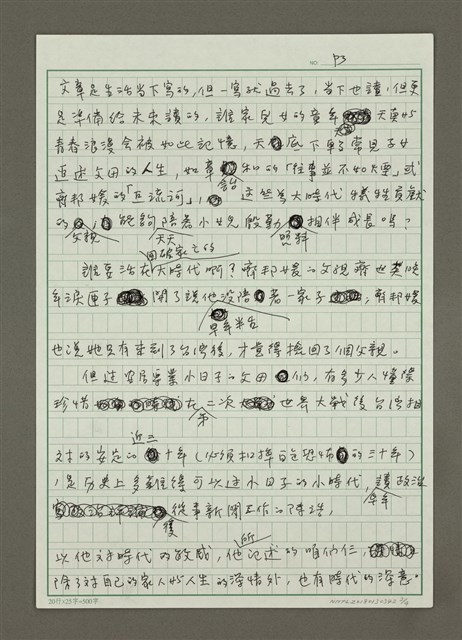 NO. P3
文章是生活當下寫的,但一寫就過去了,當下也讀,但更
是準備給未來讀的,誰家兒女的童年天真
青春浪漫會被如此記憶,天底下 常見子女
追述父母的人生,如章詒和的「往事並不如煙」或
齊邦媛的「巨流河」,這些為大時代犧牲貢獻
的父親,能夠天天陪著小女兒殷勤照料相伴成長嗎?
誰要活在國破家亡的大時代啊?齊邦媛的父親齊世英晚
年淚匣子開了說他沒陪著一家子,齊邦媛
也說她只有來到了台灣後,才覺得撿回了個父親。
但這 小日子的父母們,有多少人懂得
珍惜在第二次世界大戰後台灣相
對的安定的近三十年(必須扣掉白色恐怖的三十年)
是歷史上多難得可以過小日子的小時代,讀政治
後從事新聞工作的陳浩,早年
以他對時代的敏感,他所記述的咱們仨,
除了對自己的家人 人生的深情外,也有時代的深意。
20行×25字=500字